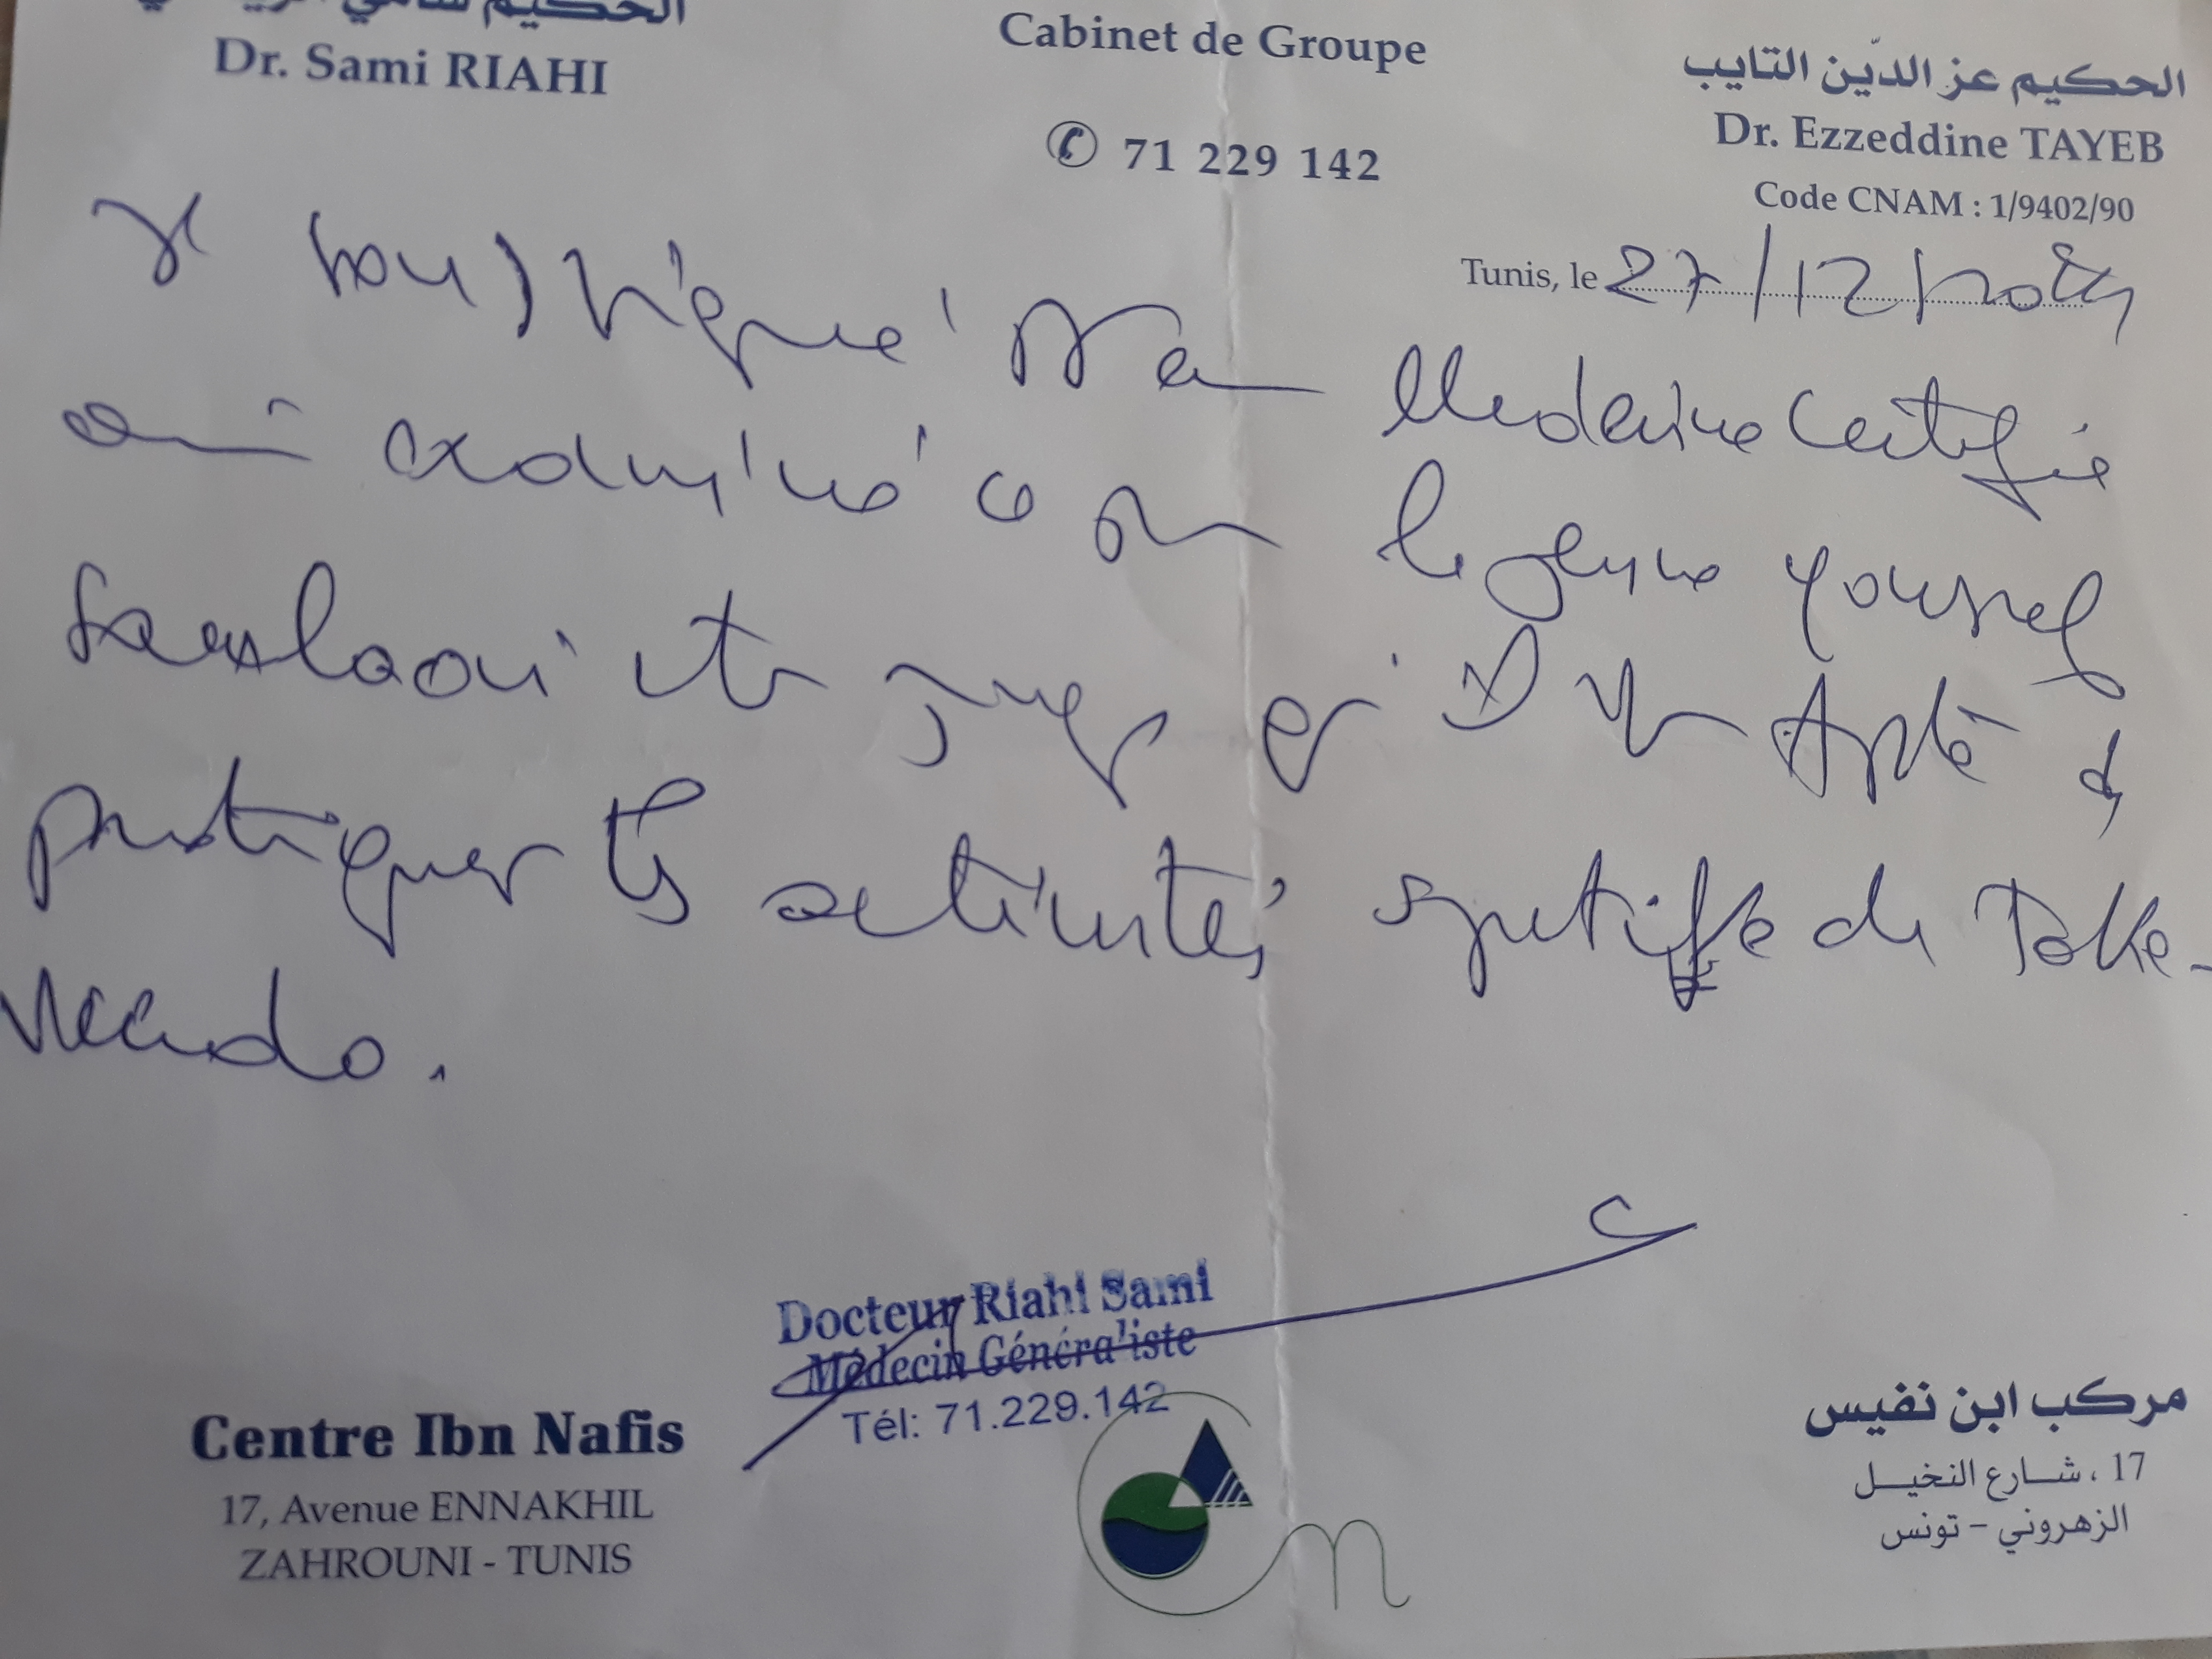 الحكيم سامي
Dr. Sami RIAHI
Cabinet de Groupe
✆ 71 229 142
الحكيم عز الدّين التايب
Dr. Ezzeddine TAYEB
Code CNAM : 1/9402/90
Tunis, le 27/12/2024
Je soussigné, Dr en Médecine certifie
avoir examiné ce jour le jeune Youssef
et jugé qu'il est Apte à
pratiquer les activités sportives de Taekwondo.
Docteur Riahi Sami
Médecin Généraliste
Tél: 71.229.142
Centre Ibn Nafis
17, Avenue ENNAKHIL
ZAHROUNI - TUNIS
مركب ابن نفيس
17 ، شارع النخيل
الزهروني - تونس